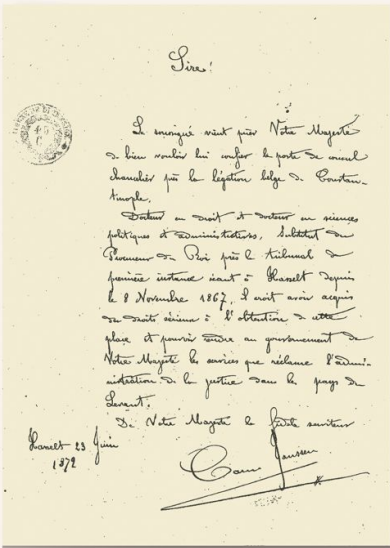 Sire!
Le soussigné vient prier Votre Majesté
de bien vouloir lui confier le poste de consul
chancelier près la légation belge de Constan-
tinople.
Docteur en droit et docteur en sciences
politiques et administratives, Substitut du
Procureur du Roi près le tribunal de
première instance séant à Hasselt depuis
le 8 Novembre 1867, il croit avoir acquis
des droits sérieux à l'obtention de cette
place et pouvoir rendre au gouvernement de
Votre Majesté les services que réclame l'admi-
nistration de la justice dans les pays du
Levant.
De Votre Majesté le fidèle serviteur
Hasselt 23 Juin
1872
Janssen